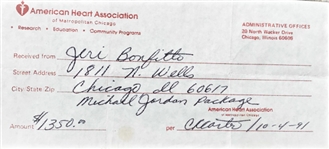 American Heart Association
of Metropolitan Chicago
Research • Education • Community Programs
ADMINISTRATIVE OFFICES
20 North Wacker Drive
Chicago, Illinois 60606
Received from Jeri Bonfitto
Street Address 1811 N. Wells
City State Zip Chicago Ill 60617
Michael Jordan Package
American Heart Association
of Metropolitan Chicago
Amount $1350.00 per 10-4-91